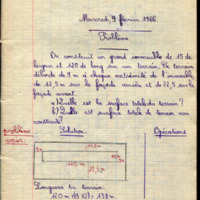 Mercredi, 9 février 1966.
Problème
On construit un grand immeuble de 15 de
largeur et 120 de long sur un terrain. Le terrain
déborde de 9 m à chaque extrémité de l'immeuble
de 12,5 m sur la façade arrière et de 22,5 sur la
façade avant.
1) Quelle est la surface totale du terrain ?
2) Quelle est la surface totale de terrain non
construite ?
Solution
Opérations
120 m
Longueur du terrain :